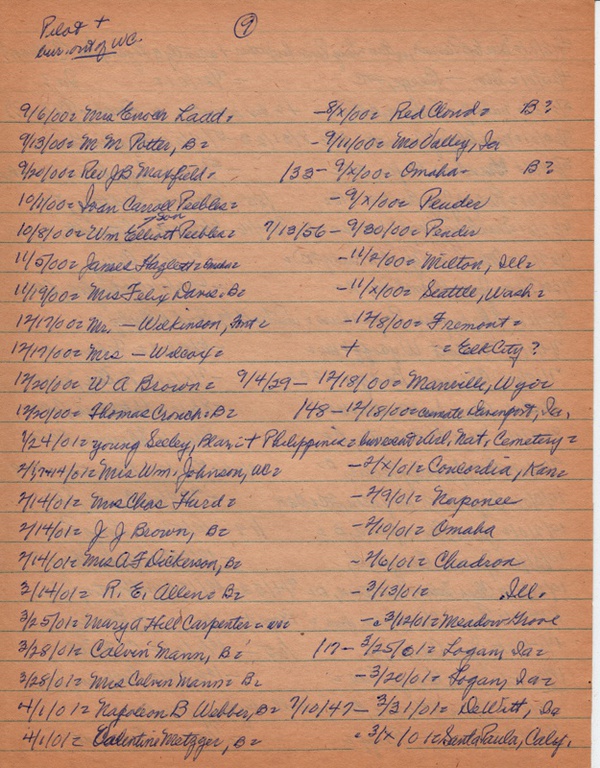 Pilot +
bur. out of WC.
9
9/6/00= Mrs Enver Ladd= -8/x/00= Red Cloud= B?
9/13/00= M M Potter, B= -9/11/00= Mo Valley, Ia
9/20/00= Rev J B Maxfield= /33- 9/x/00= Omaha= B?
10/1/00= Ivan Carroll Peebles= -9/x/00= Pender
son
10/8/00= Wm Elliott Peebles= 7/13/56-9/30/00= Pender
11/5/00= James Hazlett= -11/2/00= Milton, Ill=
11/19/00= Mrs Felix Davis= B= -11/x/00= Seattle, Wash=
12/17/00= Mr. - Wilkinson, Fmt= -12/8/00= Fremont=
12/17/00= Mrs - Wilcox= + = Elk City?
12/20/00= W A Brown= 9/4/29-12/18/00= Manville, Wyo=
12/20/00= Thomas Crouch= B= /48-12/18/00= cemate Davenport, Ia,
1/24/01= young Seeley, Blair= + Philippines= bur cent Natl. Nat, Cemetery=
2/1,7+14/01= Mrs Wm. Johnson, WC= -2/x/01= Concordia, Kan=
2/14/01= Mrs Chas Hurd= -2/9/01= Naponee
2/14/01= J J Brown, B= -2/10/01= Omaha
2/14/01= Mrs A F Dickerson, B= -2/6/01= Chadron
3/14/01= R. E. Allen= B= -3/13/01= Ill.
3/25/01= Mary A Hill Carpenter= WC= -c3/12/01= Meadow Grove
3/28/01= Calvin Mann, B= /17-3/25/01= Logan, Ia=
3/28/01= Mrs Calvin Mann= B= -3/20/01= Logan, Ia=
4/1/01= Napoleon B Webber, B= 7/10/47-3/31/01= DeWitt, Ia
4/1/01= Valentine Metzger, B= =3/x/01= Santa Paula, Calif.